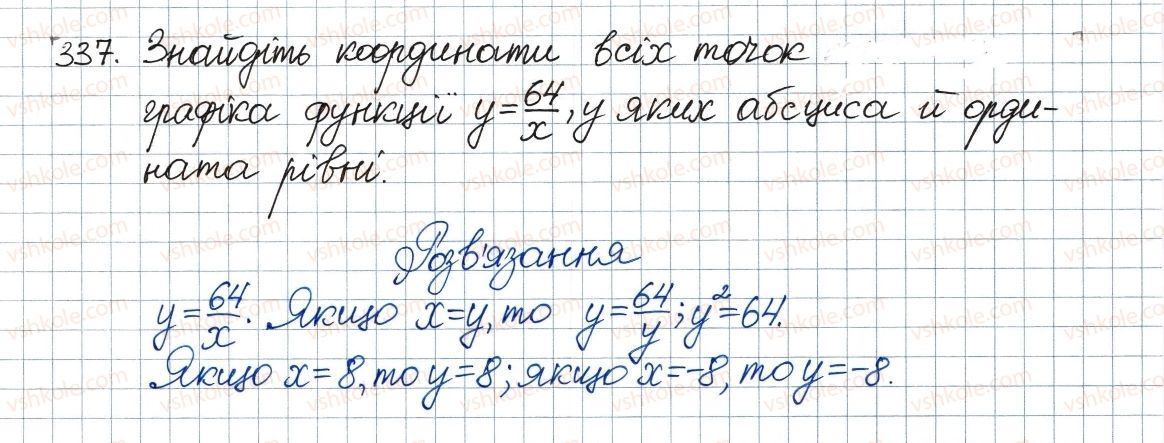 337. Знайдіть координати всіх точок
графіка функції y=64/x, у яких абсциса й орди-
ната рівні.
Розв'язання
y=64/x. Якщо x=y, то y=64/y; y²=64.
Якщо x=8, то y=8; якщо x=-8, то y=-8.